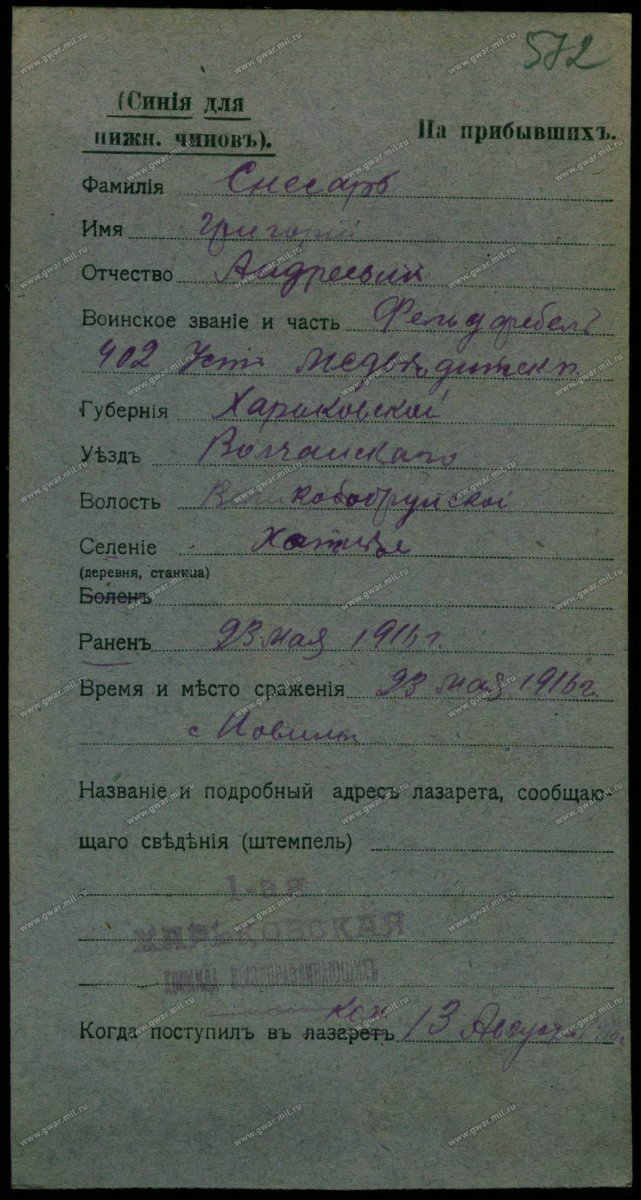 572
(Синія для
нижн. чиновъ).
На прибывшихъ.
Фамилія Снесарь
Имя Григорій
Отчество Андреевич
Воинское званіе и часть Фельдфебель
402 Усть Медведитск п.
Губернія Харьковской
Уѣздъ Волчанскаго
Волость
Селеніе
(деревня, станица)
Боленъ
Раненъ 23 мая 1916 г.
Время и мѣсто сраженія 23 мая 1916 г.
с
Названіе и подробный адресъ лазарета, сообщаю-
щаго свѣдѣнія (штемпель)
1-ая
ХАРЬКОВСКАЯ
КОМАНДА ВЫЗДОРАВЛИВАЮЩИХЪ
ком
Когда поступилъ въ лазаретъ 13 Августа